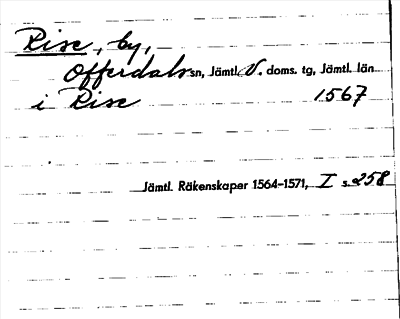 Rise, by,
Offerdals sn, Jämtl. V. doms. tg, Jämtl. län
i Rise 1567
Jämtl. Räkenskaper 1564-1571, I s. 258